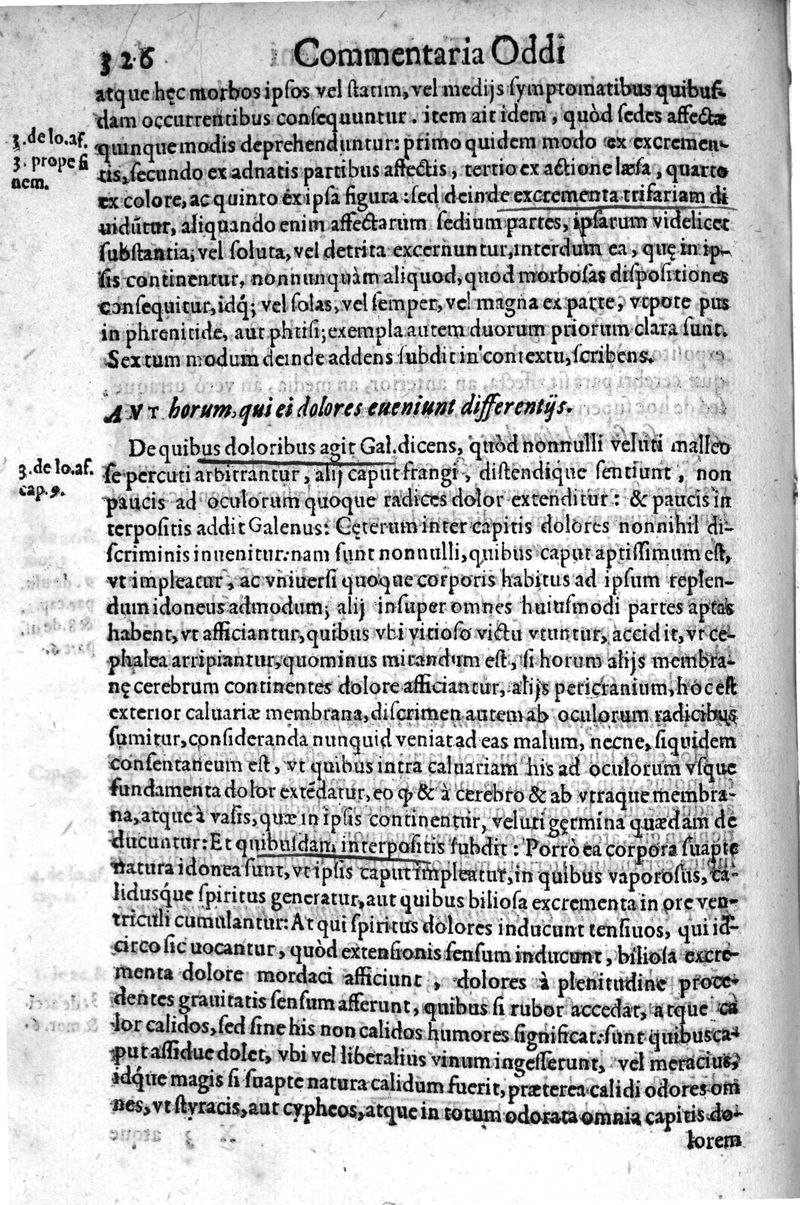 326 Commentaria Oddi
atque hęc morbos ipsos vel statim, vel medijs symptomatibus quibus-
dam occurrentibus consequuntur. item ait idem, quòd sedes affectæ
3. de lo. af. quinque modis deprehenduntur: primo quidem modo ex excremen-
3. prope fi tis, secundo ex adnatis partibus affectis, tertio ex actione læsa, quarto
nem. ex colore, ac quinto ex ipsa figura: sed deinde excrementa trifariam di
uidũtur, aliquando enim affectarum sedium partes, ipsarum videlicet
substantia; vel soluta, vel detrita excernuntur, interdum ea, quę in ip-
sis continentur, nonnunquàm aliquod, quod morbosas dispositiones
consequitur, idq́; vel solas, vel semper, vel magna ex parte, vtpote pus
in phrenitide, aut phtisi; exempla autem duorum priorum clara sunt.
Sextum modum deinde addens subdit in contextu, scribens.
AVT horum, qui ei dolores eueniunt differentijs.
De quibus doloribus agit Gal. dicens, quòd nonnulli veluti malleo
3. de lo. af. se percuti arbitrantur, alij caput frangi, distendique sentiunt, non
cap. 9. paucis ad oculorum quoque radices dolor extenditur: & paucis in
terpositis addit Galenus: Cęterum inter capitis dolores nonnihil di-
scriminis inuenitur: nam sunt nonnulli, quibus caput aptissimum est,
vt impleatur, ac vniuersi quoque corporis habitus ad ipsum replen-
dum idoneus admodum; alij insuper omnes huiusmodi partes aptas
habent, vt afficiantur, quibus vbi vitioso victu vtuntur, accidit, vt ce-
phalea arripiantur, quominus mirandum est, si horum alijs membra-
nę cerebrum continentes dolore afficiantur, alijs pericranium, hoc est
exterior caluariæ membrana, discrimen autem ab oculorum radicibus
sumitur, consideranda nunquid veniat ad eas malum, necne, siquidem
consentaneum est, vt quibus intra caluariam his ad oculorum vsque
fundamenta dolor extẽdatur, eo ꝙ & à cerebro & ab vtraque membra-
na, atque à vasis, quæ in ipsis continentur, veluti gęrmina quædam de
ducuntur: Et quibusdam interpositis subdit: Porrò ea corpora suapte
natura idonea sunt, vt ipsis caput impleatur, in quibus vaporosus, ca-
lidusque spiritus generatur, aut quibus biliosa excrementa in ore ven-
triculi cumulantur: At qui spiritus dolores inducunt tensiuos, qui id-
circo sic uocantur, quòd extensionis sensum inducunt, biliosa excre-
menta dolore mordaci afficiunt, dolores à plenitudine proce-
dentes grauitatis sensum afferunt, quibus si rubor accedat, atque ca
lor calidos, sed sine his non calidos humores significat: sunt quibus ca-
put assidue dolet, vbi vel liberalius vinum ingesserunt, vel meracius,
idque magis si suapte natura calidum fuerit, præterea calidi odores om
nes, vt styracis, aut cypheos, atque in totum odorata omnia capitis do-
lorem